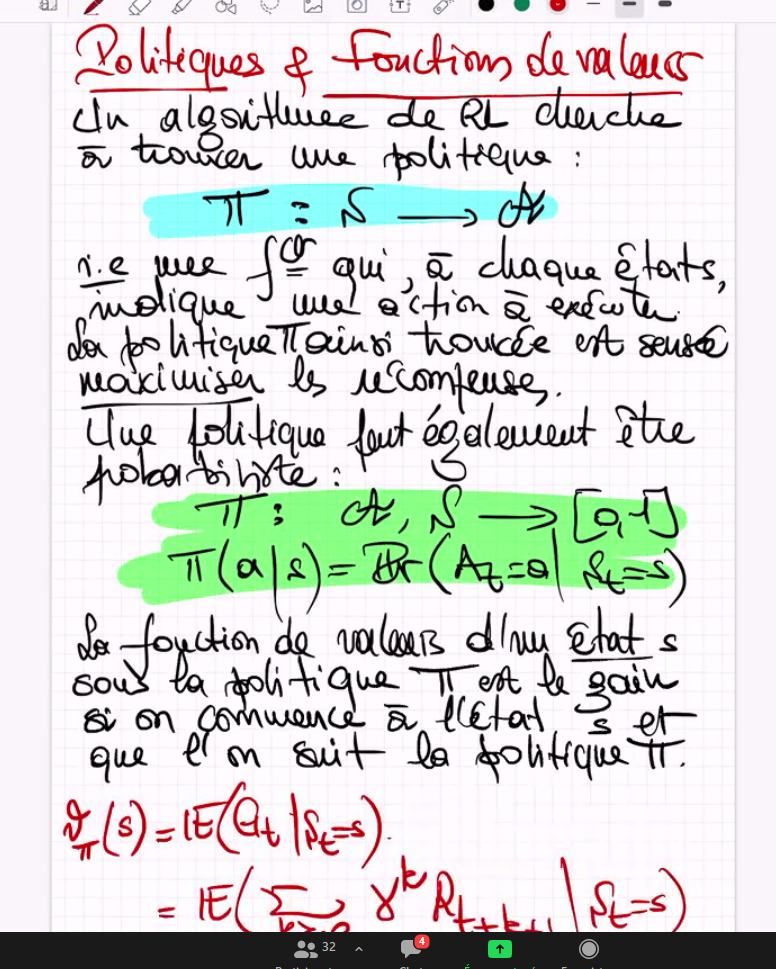 Politiques & Fonctions de valeurs
Un algorithme de RL cherche
à trouver une politique :
π : S → A
i.e une fct qui, à chaque états,
indique une action à exécuter.
La politique π ainsi trouvée est sensée
maximiser les récompenses.
Une politique peut également être
probabiliste :
π : A, S → [0,1]
π(a|s) = Pr(A_t=a | S_t=s)
La fonction de valeurs d'un état s
sous la politique π est le gain
si on commence à l'état s et
que l'on suit la politique π.
v_π(s) = E(G_t | S_t=s).
= E(∑ γ^k R_t+k+1 | S_t=s)
32
4